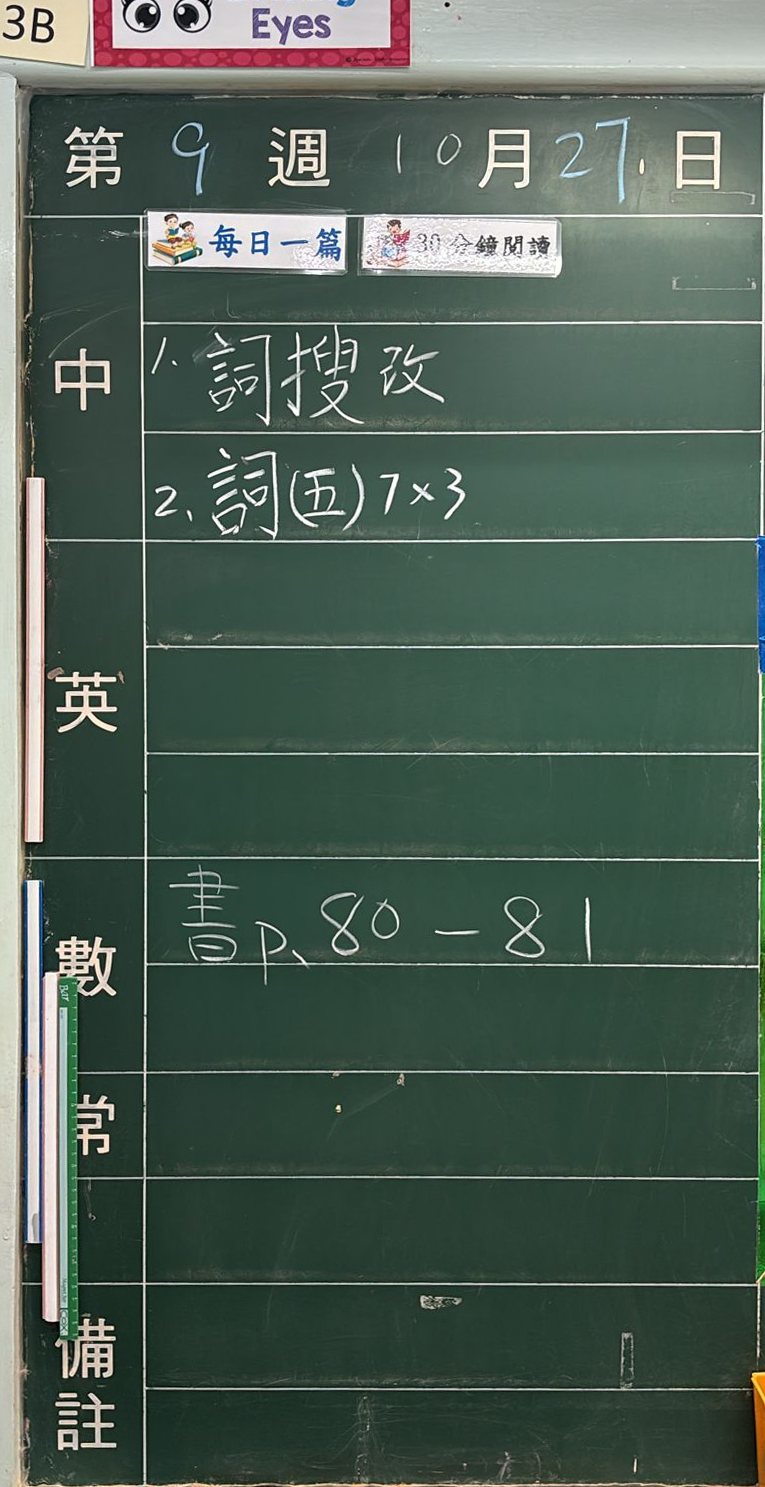 3B
Eyes
第 9 週 10月27日
每日一篇 30分鐘閱讀
中
1. 詞搜改
2. 詞(五)7×3
英
數
書p.80-81
常
備註